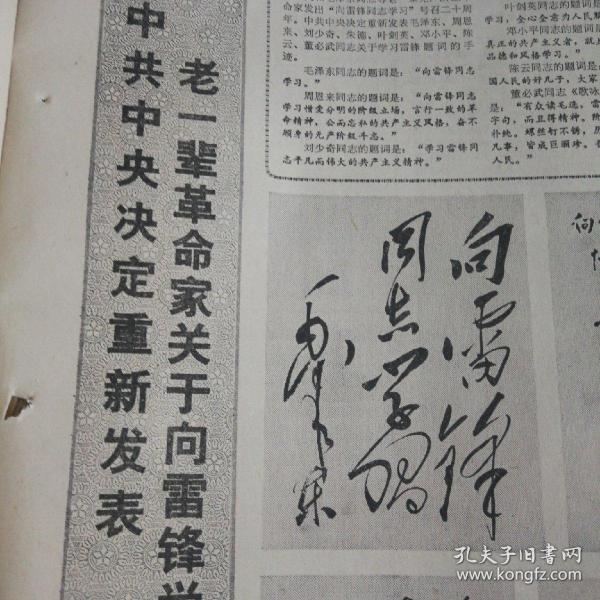 中共中央决定重新发表
老一辈革命家关于向雷锋学
命家发出“向雷锋同志学习”号召二十周
年，中共中央决定重新发表毛泽东、周恩
来、刘少奇、朱德、叶剑英、邓小平、陈
云、董必武同志关于学习雷锋题词的手
迹。
毛泽东同志的题词是：“向雷锋同志
学习。”
周恩来同志的题词是：“向雷锋同志
学习憎爱分明的阶级立场，言行一致的革
命精神，公而忘私的共产主义风格，奋不
顾身的无产阶级斗志。”
刘少奇同志的题词是：“学习雷锋同
志平凡而伟大的共产主义精神。”
叶剑英同志的题词是
学习，全心全意为人民服
邓小平同志的题词是
真正的共产主义者，就
品德和风格学习。”
陈云同志的题词是：
国人民的好儿子，大家
董必武同志《歌咏
是：“有众读毛选，雷
字句，而且得精神。阶
补纯。螺丝钉不锈，历
凡事，皆成巨丽珍。
人民。”
向雷锋
同志学习
毛泽东
孔夫子旧书网
www.kongfz.com